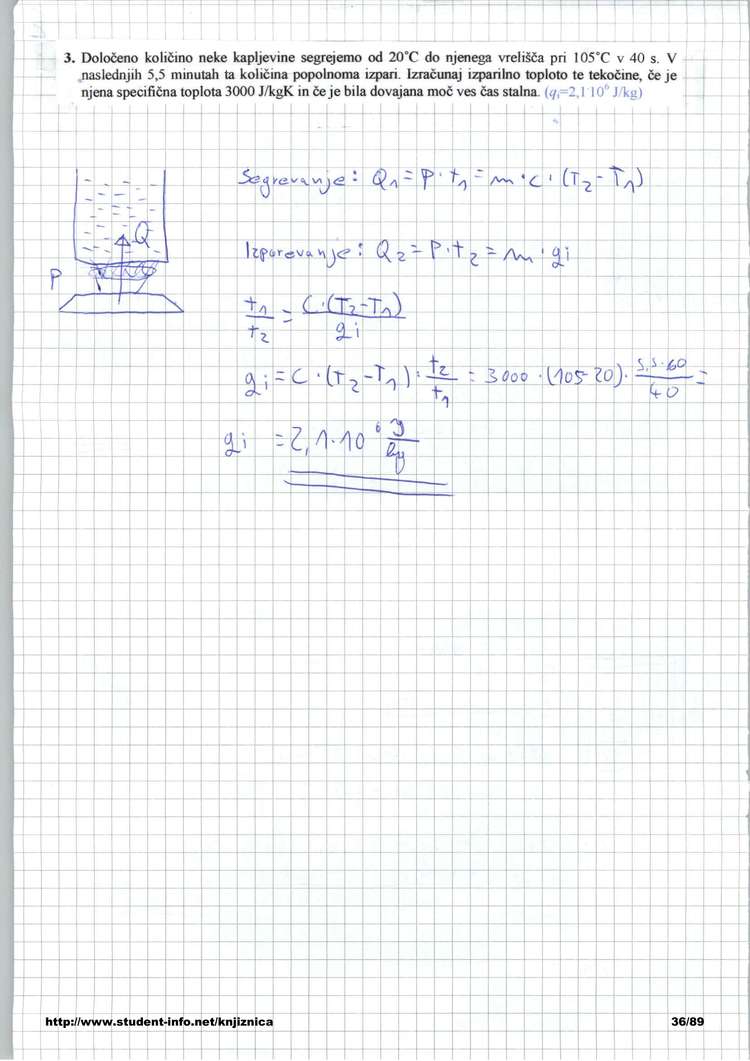 3. Določeno količino neke kapljevine segrejemo od 20°C do njenega vrelišča pri 105°C v 40 s. V
naslednjih 5,5 minutah ta količina popolnoma izpari. Izračunaj izparilno toploto te tekočine, če je
njena specifična toplota 3000 J/kgK in če je bila dovajana moč ves čas stalna. (qᵢ=2,1·10⁶ J/kg)
Segrevanje: Q₁ = P · t₁ = m · c · (T₂ - T₁)
Q
Izparevanje: Q₂ = P · t₂ = m · qi
P
t₁/t₂ = C · (T₂ - T₁)/qi
qi = C · (T₂ - T₁) · t₂/t₁ = 3000 · (105-20) · 5,5·60/40 =
qi = 2,1 · 10⁶ J/kg
http://www.student-info.net/knjiznica 36/89